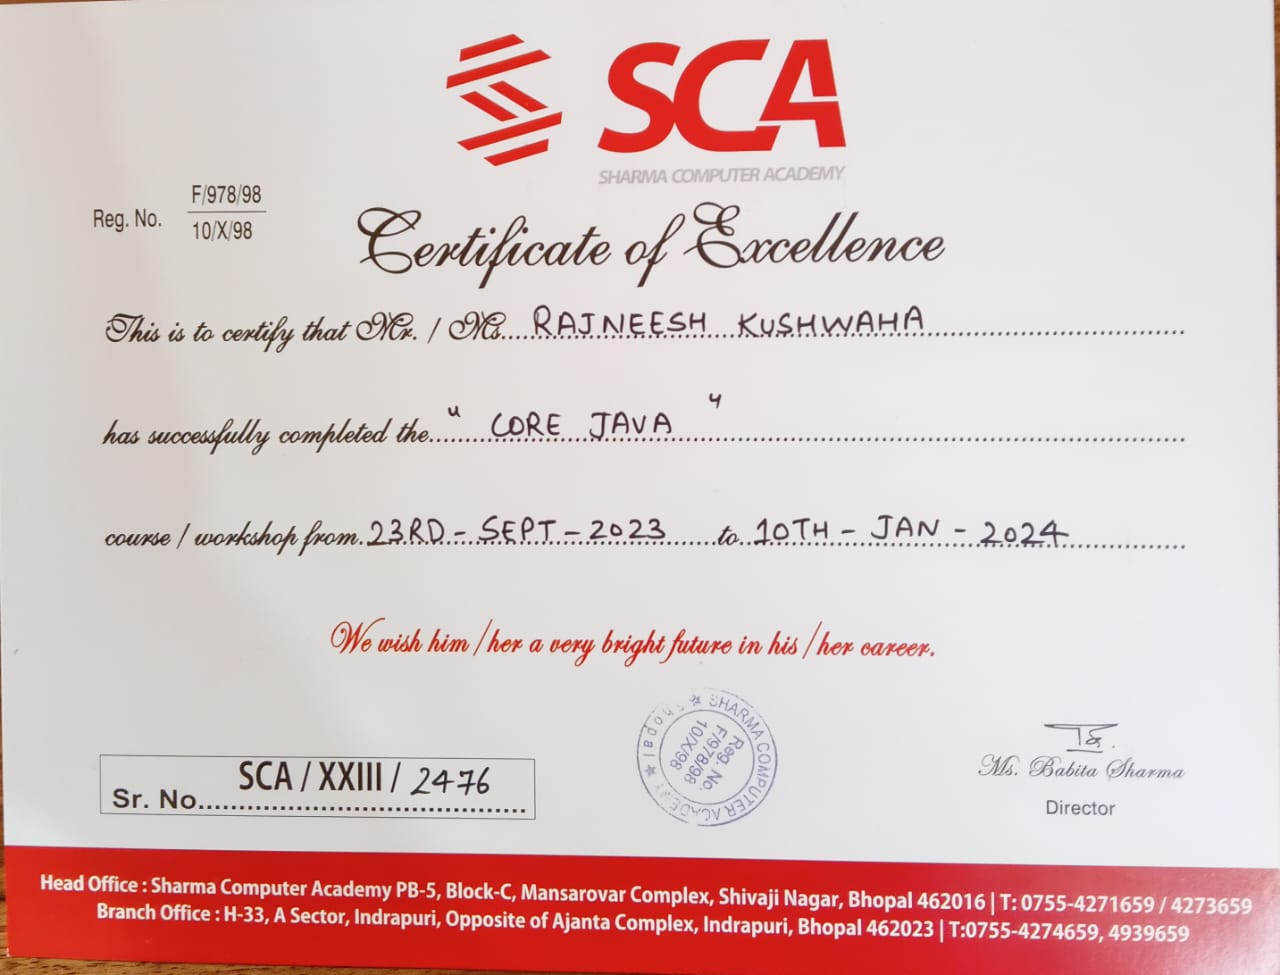 SCA
SHARMA COMPUTER ACADEMY
Reg. No. F/978/98
10/X/98
Certificate of Excellence
This is to certify that Mr. / Ms. RAJNEESH KUSHWAHA
has successfully completed the " CORE JAVA "
course / workshop from 23RD - SEPT - 2023 to 10TH - JAN - 2024
We wish him / her a very bright future in his / her career.
★ SHARMA COMPUTER ACADEMY ★ Bhopal
Reg. No.
F/978/98
10/X/98
Sr. No. SCA / XXIII / 2476
Ms. Babita Sharma
Director
Head Office : Sharma Computer Academy PB-5, Block-C, Mansarovar Complex, Shivaji Nagar, Bhopal 462016 | T: 0755-4271659 / 4273659
Branch Office : H-33, A Sector, Indrapuri, Opposite of Ajanta Complex, Indrapuri, Bhopal 462023 | T:0755-4274659, 4939659